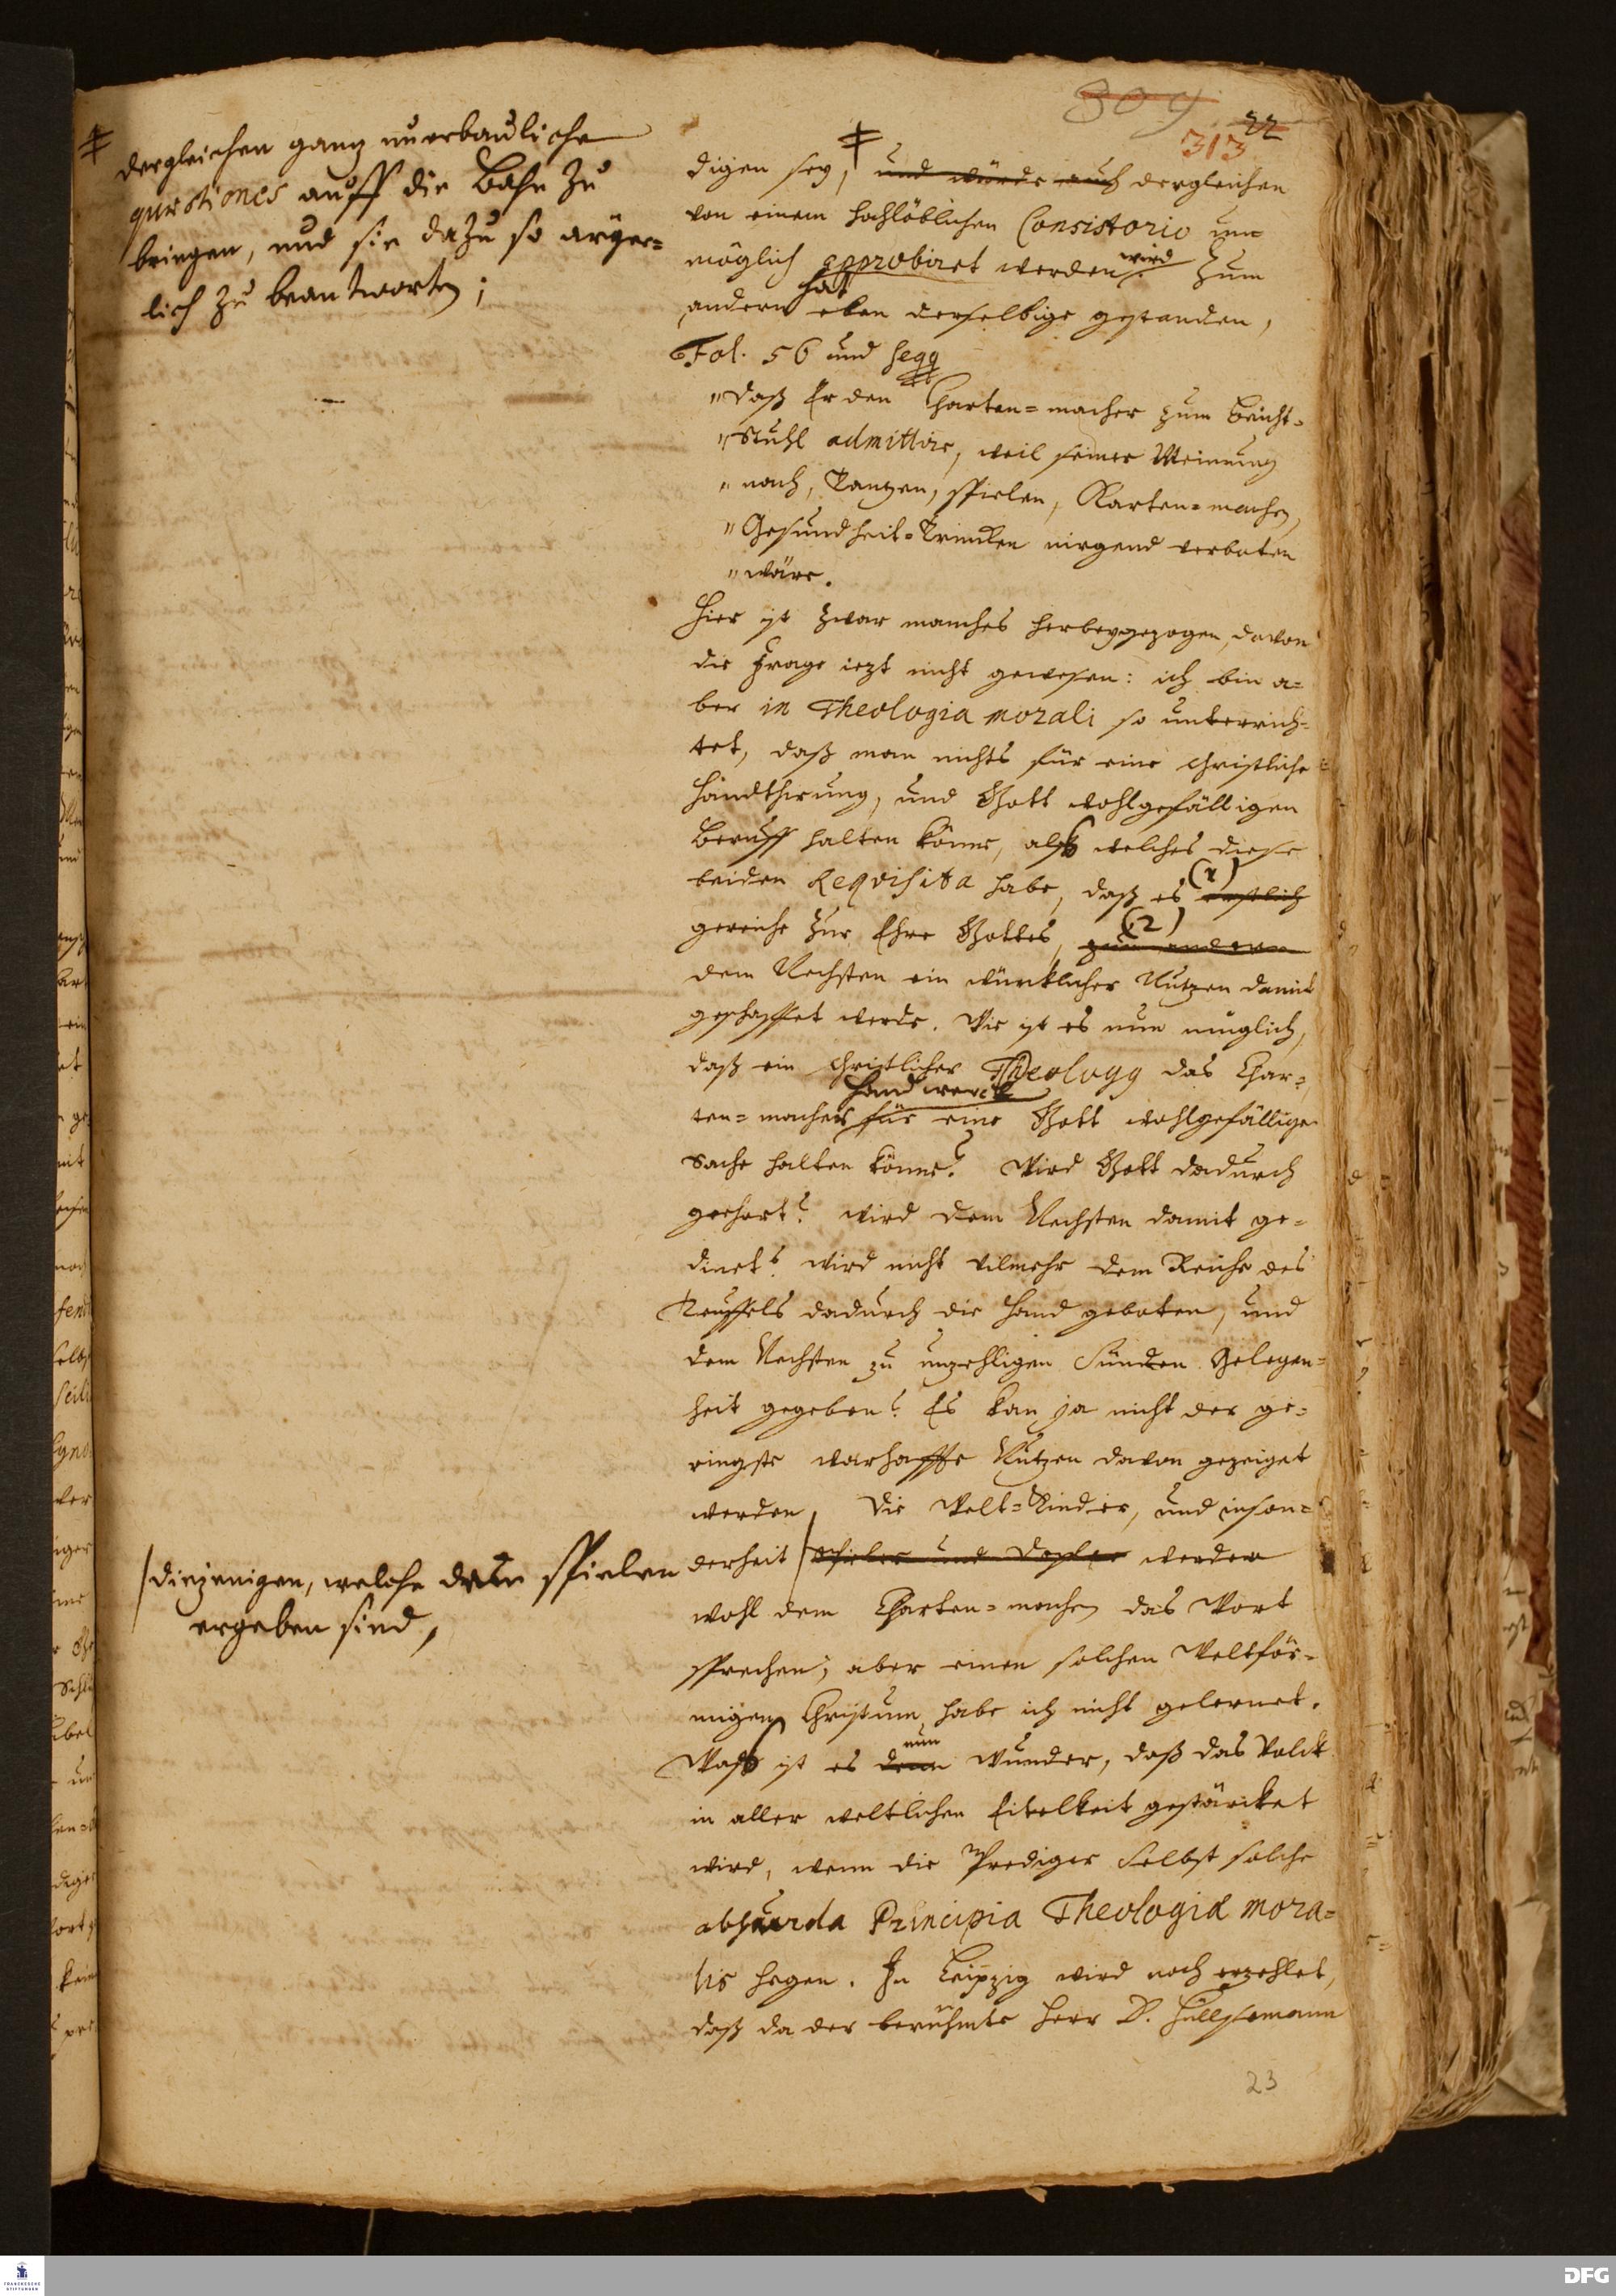 309
22
313
‡ dergleichen gantz unerbauliche
quæstiones auff die Bahn zu
bringen, und sie dazu so ärger=
lich zu beantworten;
digen sey, ‡ und würde auch dergleichen
von einem hochlöblichen Consistorio un=
möglich approbiret werden wird. Zum
andern hat eben derselbige gestanden,
Fol. 56 und seqq
"Daß Er den Charten=macher zum Beicht=
"Stuhl admittire, weil seiner Meinung
"nach, Tantzen, spielen, Karten=machen,
"Gesundheit=Trincken nirgend verboten
"wäre.
Hier ist zwar manches herbeygezogen, davon
die Frage ietzt nicht gewesen: ich bin a=
ber in Theologia morali so unterrich=
tet, daß man nichts für eine christliche
Handthirung, und Gott wohlgefälligen
Beruff halten könne, alß welches diese
beiden Requisita habe, daß es (1) erstlich
gereiche zur Ehre Gottes, (2) zum andern
dem Nechsten ein würcklicher Nutzen damit
geschaffet werde. Wie ist es nun müglich,
daß ein christlicher Theologg das Char=
ten=machers Handwerck für eine Gott wohlgefällige
Sache halten könne? Wird Gott dadurch
geehret? wird dem Nechsten damit ge=
dienet? wird nicht vilmehr dem Reiche des
Teuffels dadurch die Hand geboten, und
dem Nechsten zu unzehligen Sünden Gelegen=
heit gegeben? Es kan ja nicht der ge=
ringste warhaffte Nutzen davon gezeiget
werden, Die Welt=Kinder, und inson=
derheit Spieler und Dopler werden
/diejenigen, welche dem spielen
ergeben sind,
wohl dem Charten=machen das Wort
sprechen; aber einen solchen Weltför=
migen Christum habe ich nicht gelernet.
Waß ist es denn nun Wunder, daß das Volck
in aller weltlichen Eitelkeit gestärcket
wird, wenn die Prediger selbst solche
absurda Principia Theologiæ mora=
lis hegen. In Leipzig wird noch erzehlet,
daß da der berühmte Herr D. Hülsemann
23
FRANCKESCHE
STIFTUNGEN
DFG